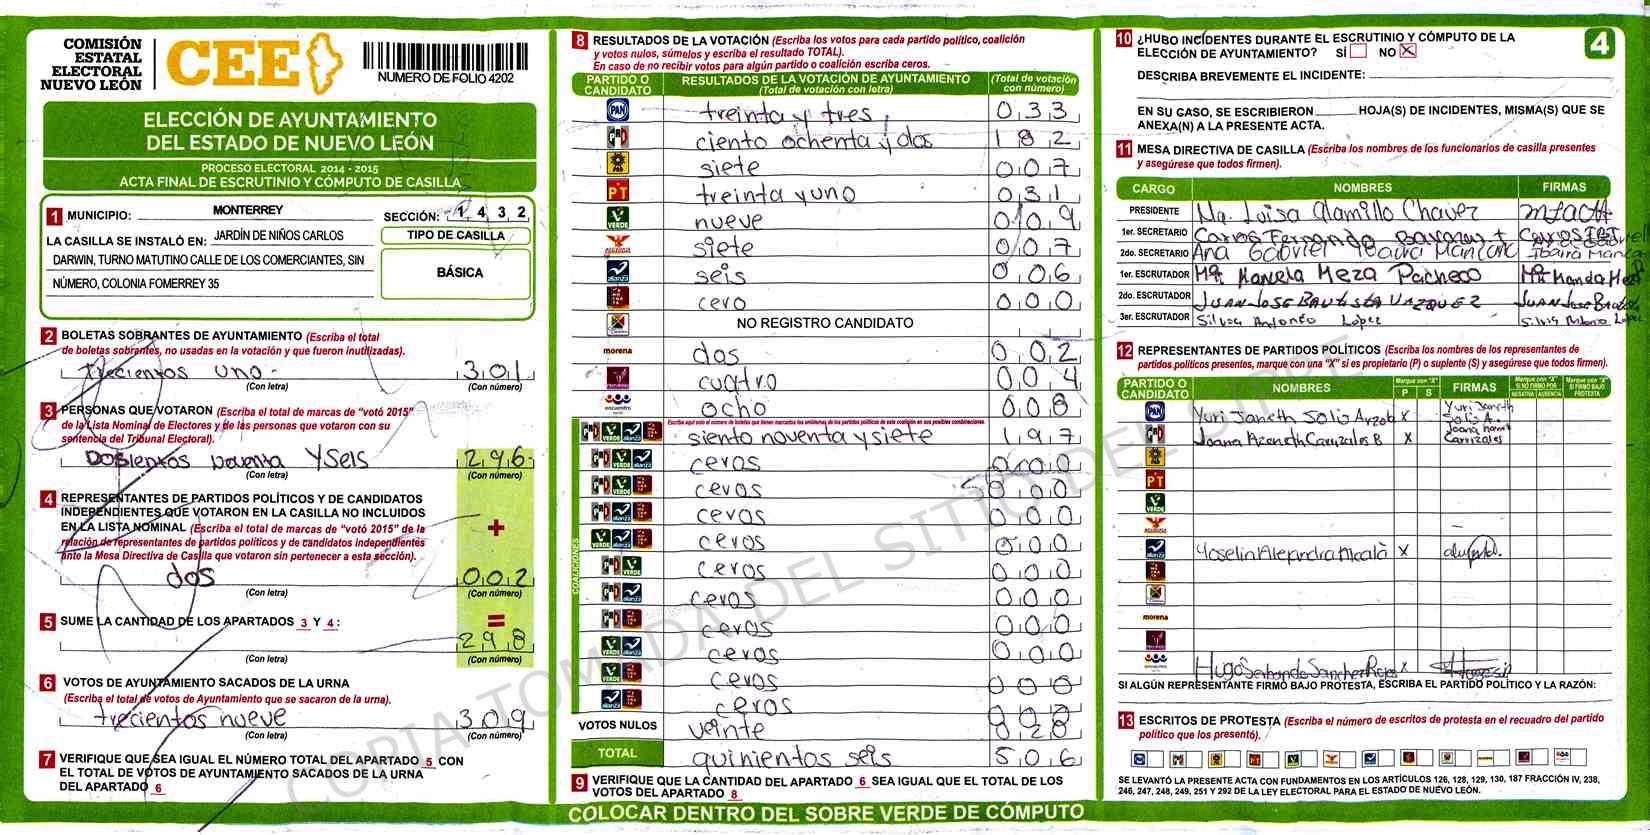 COMISIÓN
ESTATAL
ELECTORAL
NUEVO LEÓN
CEE
NUMERO DE FOLIO 4202
ELECCIÓN DE AYUNTAMIENTO
DEL ESTADO DE NUEVO LEÓN
PROCESO ELECTORAL 2014 - 2015
ACTA FINAL DE ESCRUTINIO Y CÓMPUTO DE CASILLA
1 MUNICIPIO: MONTERREY SECCIÓN: 1 4 3 2
LA CASILLA SE INSTALÓ EN: JARDÍN DE NIÑOS CARLOS
DARWIN, TURNO MATUTINO CALLE DE LOS COMERCIANTES, SIN
NÚMERO, COLONIA FOMERREY 35
TIPO DE CASILLA
BÁSICA
2 BOLETAS SOBRANTES DE AYUNTAMIENTO (Escriba el total
de boletas sobrantes, no usadas en la votación y que fueron inutilizadas).
Trecientos uno 301
(Con letra) (Con número)
3 PERSONAS QUE VOTARON (Escriba el total de marcas de "votó 2015"
de la Lista Nominal de Electores y de las personas que votaron con su
sentencia del Tribunal Electoral).
Dosientos noventa y seis 296
(Con letra) (Con número)
4 REPRESENTANTES DE PARTIDOS POLÍTICOS Y DE CANDIDATOS
INDEPENDIENTES QUE VOTARON EN LA CASILLA NO INCLUIDOS
EN LA LISTA NOMINAL (Escriba el total de marcas de "votó 2015" de la
relación de representantes de partidos políticos y de candidatos independientes
ante la Mesa Directiva de Casilla que votaron sin pertenecer a esta sección).
+
dos 002
(Con letra) (Con número)
5 SUME LA CANTIDAD DE LOS APARTADOS 3 Y 4:
=
298
(Con letra) (Con número)
6 VOTOS DE AYUNTAMIENTO SACADOS DE LA URNA
(Escriba el total de votos de Ayuntamiento que se sacaron de la urna).
trecientos nueve 309
(Con letra) (Con número)
7 VERIFIQUE QUE SEA IGUAL EL NÚMERO TOTAL DEL APARTADO 5 CON
EL TOTAL DE VOTOS DE AYUNTAMIENTO SACADOS DE LA URNA
DEL APARTADO 6
8 RESULTADOS DE LA VOTACIÓN (Escriba los votos para cada partido político, coalición
y votos nulos, súmelos y escriba el resultado TOTAL).
En caso de no recibir votos para algún partido o coalición escriba ceros.
PARTIDO O CANDIDATO RESULTADOS DE LA VOTACIÓN DE AYUNTAMIENTO (Total de votación con letra) (Total de votación con número)
PAN treinta y tres 033
PRI ciento ochenta y dos 182
PRD siete 007
PT treinta y uno 031
VERDE nueve 009
siete 007
alianza seis 006
cero 000
NO REGISTRO CANDIDATO
morena dos 002
cuatro 004
encuentro ocho 008
Escriba aquí solo el número de boletas que tienen marcados los emblemas de los partidos políticos de esta coalición en sus posibles combinaciones.
siento noventa y siete 197
COALICIONES
ceros 000
ceros 000
ceros 000
ceros 000
ceros 000
ceros 000
ceros 000
ceros 000
ceros 000
ceros
VOTOS NULOS veinte
TOTAL quinientos seis 506
9 VERIFIQUE QUE LA CANTIDAD DEL APARTADO 6 SEA IGUAL QUE EL TOTAL DE LOS
VOTOS DEL APARTADO 8
COLOCAR DENTRO DEL SOBRE VERDE DE CÓMPUTO
10 ¿HUBO INCIDENTES DURANTE EL ESCRUTINIO Y CÓMPUTO DE LA
ELECCIÓN DE AYUNTAMIENTO? SÍ NO X
4
DESCRIBA BREVEMENTE EL INCIDENTE:
EN SU CASO, SE ESCRIBIERON HOJA(S) DE INCIDENTES, MISMA(S) QUE SE
ANEXA(N) A LA PRESENTE ACTA.
11 MESA DIRECTIVA DE CASILLA (Escriba los nombres de los funcionarios de casilla presentes
y asegúrese que todos firmen).
CARGO NOMBRES FIRMAS
PRESIDENTE Ma. Luisa Alamillo Chavez
1er. SECRETARIO Carlos Fernando
2do. SECRETARIO Ana Gabriel Ibarra
1er. ESCRUTADOR Ma Manuela Meza Pacheco
2do. ESCRUTADOR JUAN JOSE BAUTISTA VAZQUEZ
3er. ESCRUTADOR Silvia Antonio Lopez
12 REPRESENTANTES DE PARTIDOS POLÍTICOS (Escriba los nombres de los representantes de
partidos políticos presentes, marque con una "X" si es propietario (P) o suplente (S) y asegúrese que todos firmen).
PARTIDO O CANDIDATO NOMBRES Marque con "X" P S FIRMAS Marque con "X" SI NO FIRMO POR NEGATIVA AUSENCIA Marque con "X" SI FIRMO BAJO PROTESTA
PAN Yuri Janeth Solis X Yuri Janeth Solis A.
Joana Azeneth Carrizales B X Joana Carrizales
PRD
PT
VERDE
alianza Yoselin Alejandra Alcalá X
morena
encuentro Hugo Sanchez Rojas X
SI ALGÚN REPRESENTANTE FIRMO BAJO PROTESTA, ESCRIBA EL PARTIDO POLÍTICO Y LA RAZÓN:
13 ESCRITOS DE PROTESTA (Escriba el número de escritos de protesta en el recuadro del partido
político que los presentó).
SE LEVANTÓ LA PRESENTE ACTA CON FUNDAMENTOS EN LOS ARTÍCULOS 126, 128, 129, 130, 187 FRACCIÓN IV, 238,
246, 247, 248, 249, 251 Y 292 DE LA LEY ELECTORAL PARA EL ESTADO DE NUEVO LEÓN.
COPIA TOMADA DEL SITIO DEL SIPRE